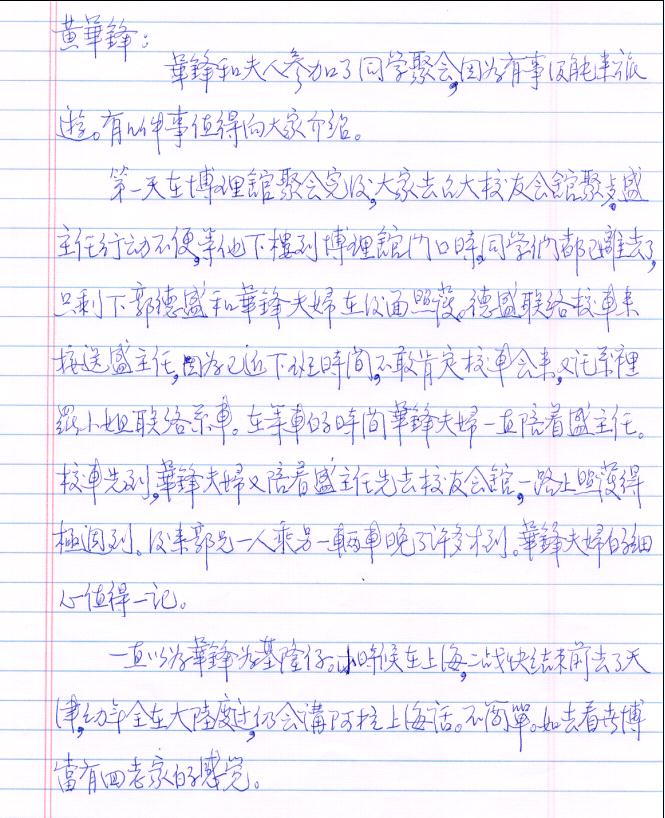 黄華鋒：
華鋒和夫人參加了同学聚会,因为有事没能去旅
遊。有以件事值得向大家介绍。
第一天在博理館聚会完後,大家去台大校友会館聚餐。盛
主任行动不便,等他下樓到博理館门口時,同学们都已離去了,
只剩下郭德盛和華鋒夫婦在後面照護。德盛联络校車来
接送盛主任,因为已近下班時间,不敢肯定校車会来,又託系裡
小姐联络系車。在等車的時间華鋒夫婦一直陪着盛主任。
校車先到,華鋒夫婦又陪着盛主任先去校友会館,一路上照護得
極週到。後来郭兄一人乘另一輛車晚了许多才到。華鋒夫婦的细
心值得一记。
一直以为華鋒为基隆仔。小時候在上海,二战快结束前去了天
津,幼年全在大陸度过,仍会講阿拉上海话。不简單。如去看世博
當有回老家的感觉。